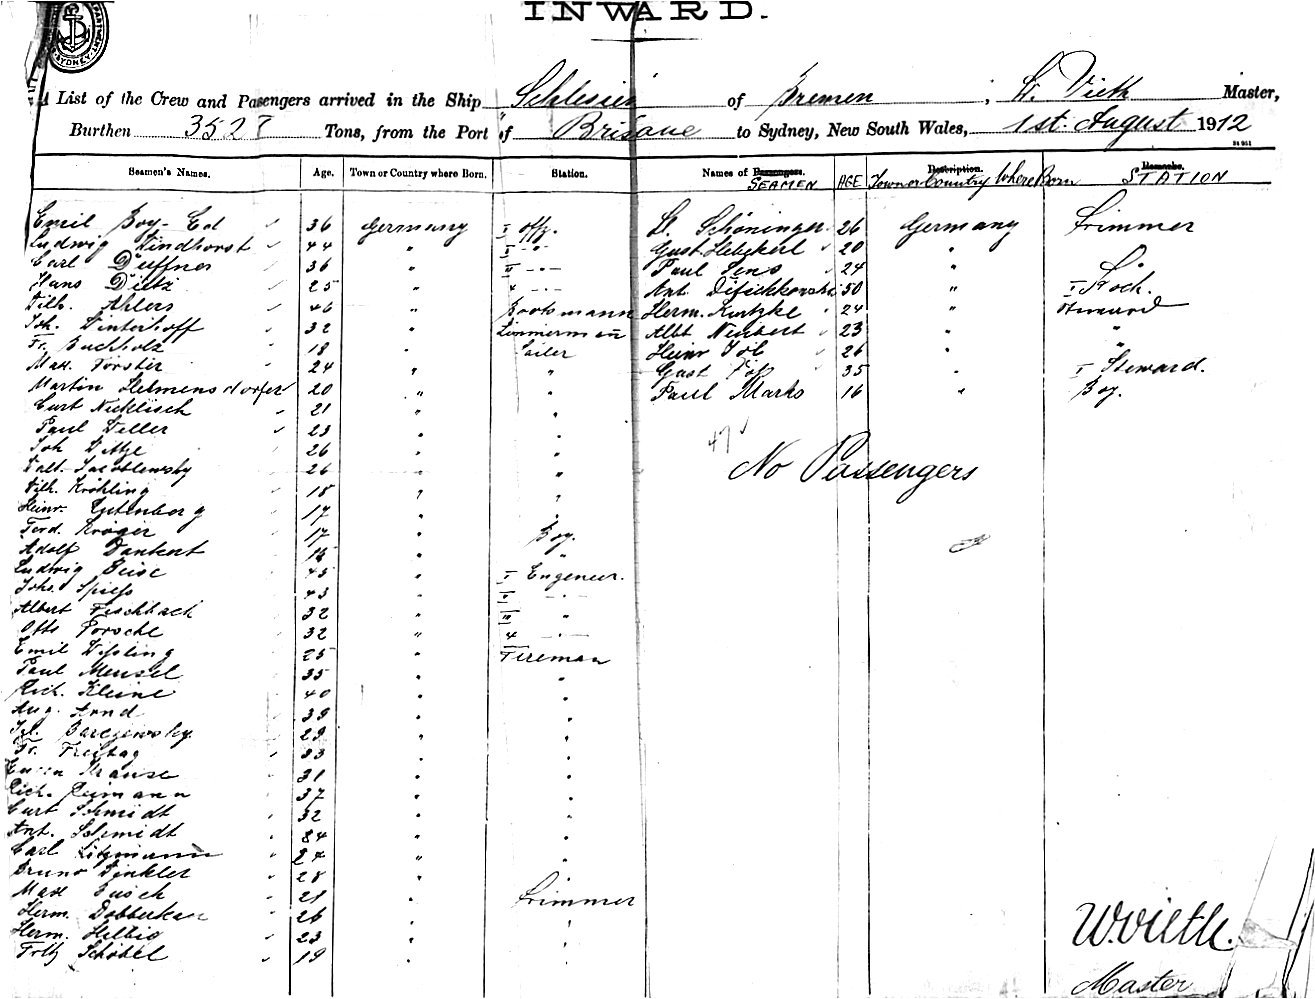 INWARD.
SYDNEY
A List of the Crew and Passengers arrived in the Ship Schlesien of Bremen, W. Vieth Master,
Burthen 3527 Tons, from the Port of Brisbane to Sydney, New South Wales, 1st. August 1912
Seamen's Names. Age. Town or Country where Born. Station. Names of Passengers. SEAMEN AGE Description. Town or Country Where Born Remarks. STATION
Emil Boy-Ed 36 Germany I Offz. 26 Germany Trimmer
Ludwig Lindhorst 44 " II -"- 20 "
Carl Duffner 36 " III -"- Paul Sens 24 "
Hans Dietz 25 " 4 -"- Ant. 50 " I Koch.
Wilh. Ahlers 46 " Bootsmann Herm. Kutzke 24 " Steward
Joh. Winterhoff 32 " Zimmermann Albt Neubert 23 " "
Fr. Buchholz 18 " Sailer Heinr 26 "
Max. Förster 24 " " Gust 35 " I Steward.
Martin Helmensdorfer 20 " " Paul Marks 16 " Boy.
Curt Nicklisch 21 " "
Paul Weller 23 " "
Joh Wittge 26 " " 47
Walt. 26 " " No Passengers
Wilh. Kröhling 18 " "
Heinr. 17 " "
Ferd. Kröger 17 " Boy.
Adolf Dankert 15 " "
Ludwig Beise 45 " I Engeneer.
Johs. Spiess 43 " II -"-
Albert Fischbach 32 " III "
Otto Porsche 32 " 4 -"-
Emil Wissling 25 " Fireman
Paul Mensel 35 " "
Rich. Kleine 40 " "
Aug. Arnd 39 " "
29 " "
Fr. Freitag 33 " "
Krause 31 " "
Rich. Reimann 37 " "
Curt Schmidt 32 " "
Ant. Schmidt 34 " "
Carl Litzmann 24 " "
Bruno Winkler 28 " "
Max Busch 21 " Trimmer
Herm. Dobberkau 26 " "
Herm. Helbig 23 " "
Fritz Schöbel 19 " "
W. Vieth.
Master